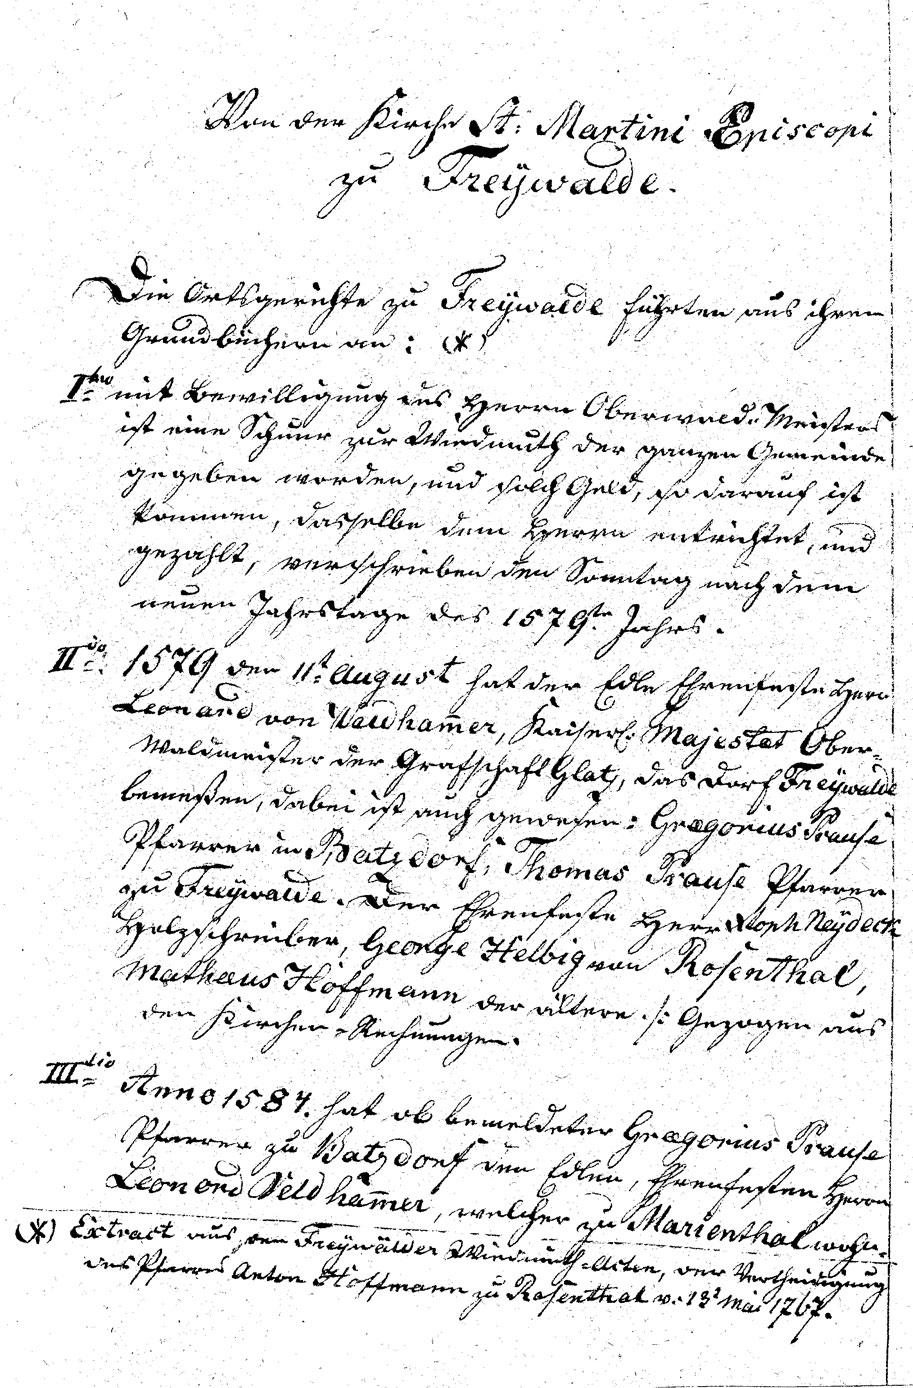 Von der Kirche St: Martini Episcopi
zu Freÿwalde.
Die Ortsgerichte zu Freÿwalde führten aus ihren
Grundbüchern an: (*)
Imo mit Bewilligung des Herrn Oberwald-Meisters
ist eine Schnur zur Wiedmuth der ganzen Gemeinde
gegeben worden, und solch Geld, so darauf ist
kommen, dasselbe dem Herrn entrichtet, und
gezahlt, verschrieben den Sonntag nach dem
neuen Jahrstage des 1579ten Jahrs.
IIdo: 1579 den 11t August hat der Edle Ehrenfeste Herr
Leonard von Veldham̄er, Kaiserl: Majestat Ober-
Waldmeister der Grafschaft Glatz, das Dorf Freÿwalde
bemeßen, dabei ist auch gewesen: Gregorius Prause
Pfarrer in Batzdorf, Thomas Prause Pfarrer
zu Freÿwalde. Der Ehrenfeste Herr Xtoph Neÿdeck
Holzschreiber, George Helbig von Rosenthal,
Mathæus Hoffmann der ältere ./: Gezogen aus
den Kirchen-Rechnungen.
IIItio Anno 1587. hat ob bemeldeter Gregorius Prause
Pfarrer zu Batzdorf den Edlen, Ehrenfesten Herrn
Leonard Veldham̄er, welcher zu Marienthal wohn-
(*) Extract aus den Freÿwälder Wiedmuth-Acten, der Vertheidigung
des Pfarrers Anton Hoffmann zu Rosenthal v. 13t Mai 1767.